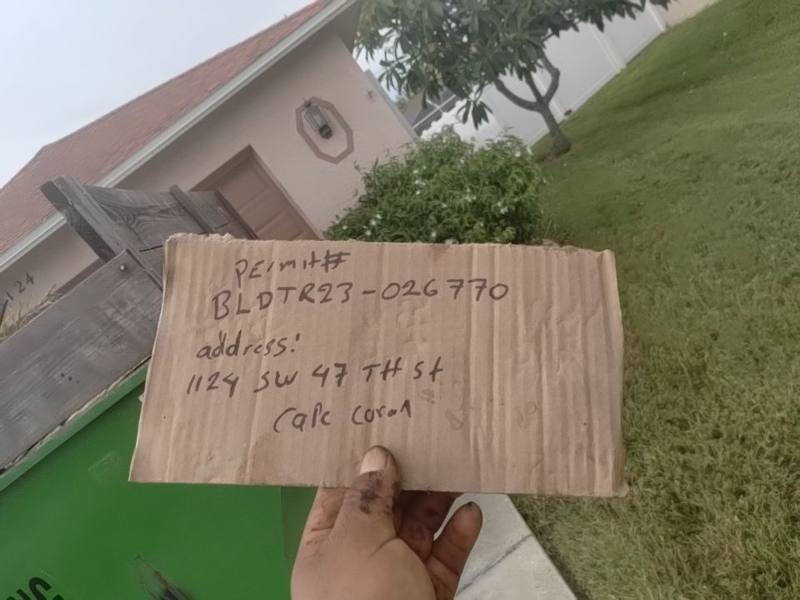 PErmit#
BLDTR23-026770
address:
1124 SW 47 TH St
Cape Coral
124